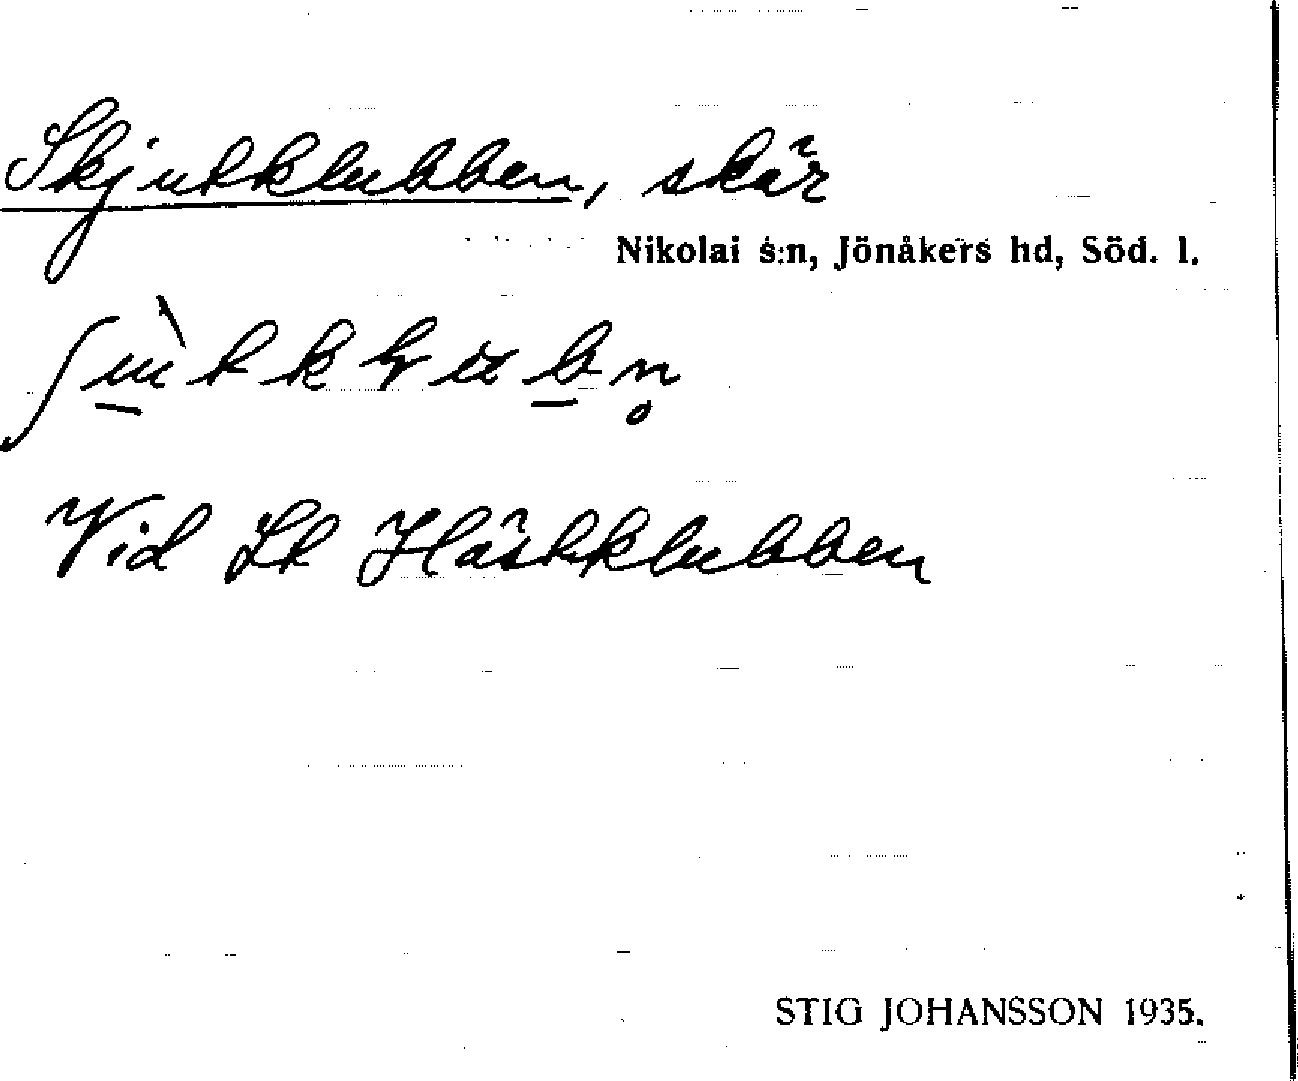 Skjutklubben, skär
Nikolai s:n, Jönåkers hd, Söd. l.
Vid St Hästklubben
STIG JOHANSSON 1935.